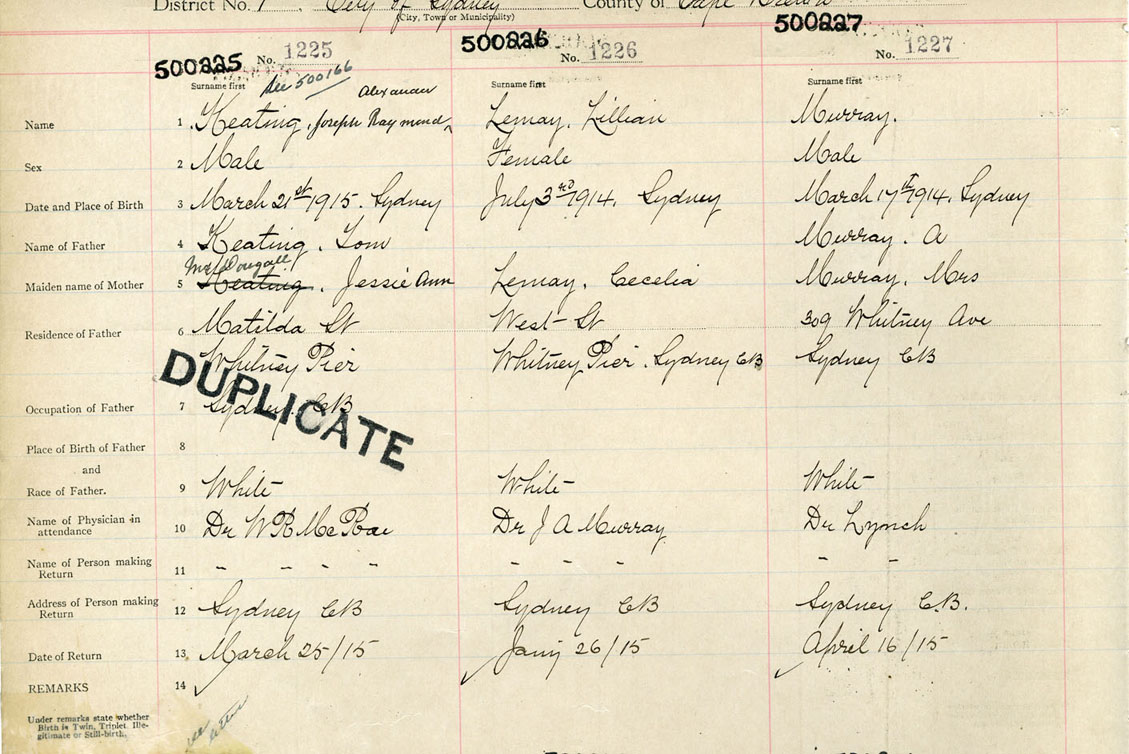 District No. 1. City of Sydney County of Cape Breton
(City, Town or Municipality)
500225 No. 1225 500226 No. 1226 500227 No. 1227
Surname first See 500166 Surname first Surname first
Alexander
Name 1. Keating, Joseph Raymond, Lemay, Lillian Murray.
Sex 2 Male Female Male
Date and Place of Birth 3 March 21st 1915. Sydney July 3rd 1914. Sydney March 17th 1914. Sydney
Name of Father 4 Keating. Tom Murray. A
McDougall
Maiden name of Mother 5 Keating, Jessie Ann Lemay, Cecelia Murray, Mrs
Residence of Father 6 Matilda St West St 309 Whitney Ave
Whitney Pier Whitney Pier. Sydney CB Sydney CB
DUPLICATE
Occupation of Father 7 Sydney. CB
Place of Birth of Father 8
and
Race of Father. 9 White White White
Name of Physician in attendance 10 Dr W R McRae Dr J A Murray Dr Lynch
Name of Person making Return 11 - - - - - - - - -
Address of Person making Return 12 Sydney CB Sydney CB Sydney C.B.
Date of Return 13 March 25/15 Jany 26/15 April 16/15
REMARKS 14
Under remarks state whether
Birth is Twin, Triplet, Ille-
gitimate or Still-birth.